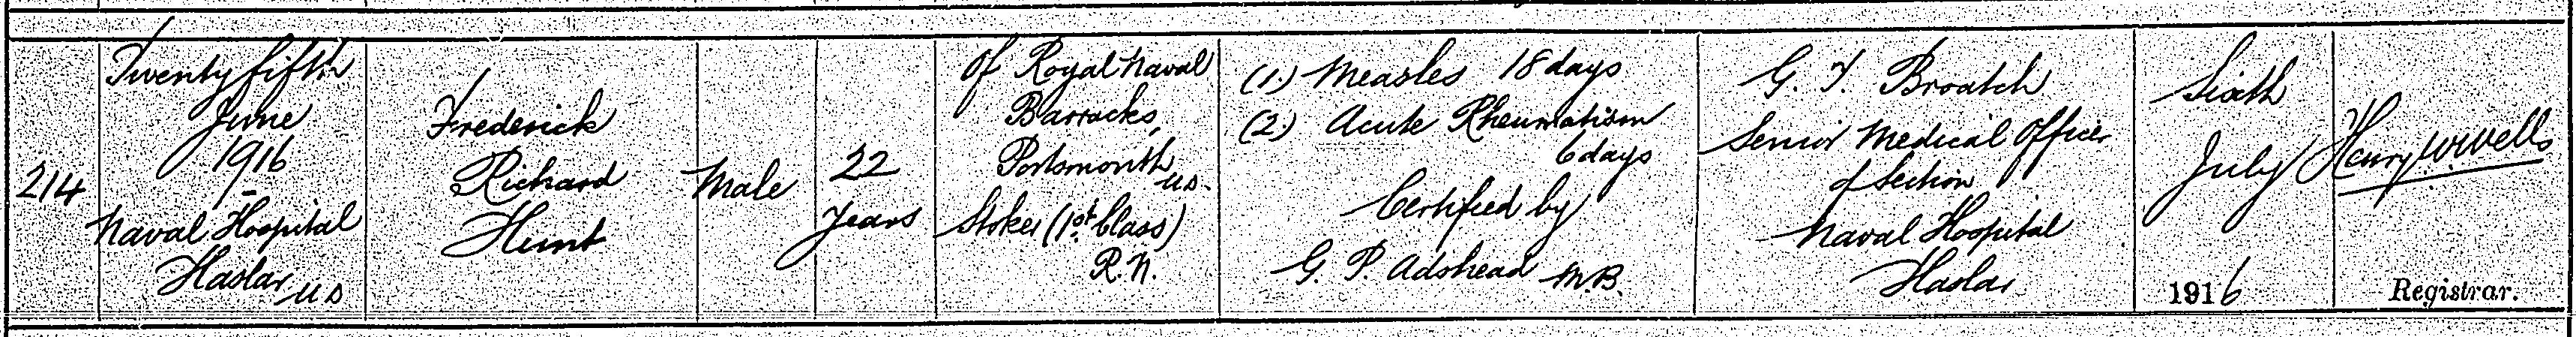 214
Twenty fifth
June
1916
Naval Hospital
Haslar U D
Frederick
Richard
Hunt
Male
22
years
Of Royal Naval
Barracks,
Portsmouth
U.D.
Stoker (1st Class)
R.N.
(1.) Measles 18 days
(2.) Acute Rheumatism
6 days
Certified by
G. P. Adshead M.B.
G. T. Broatch
Senior Medical Officer
of Section
Naval Hospital
Haslar
Sixth
July
1916
Henry Wells
Registrar.